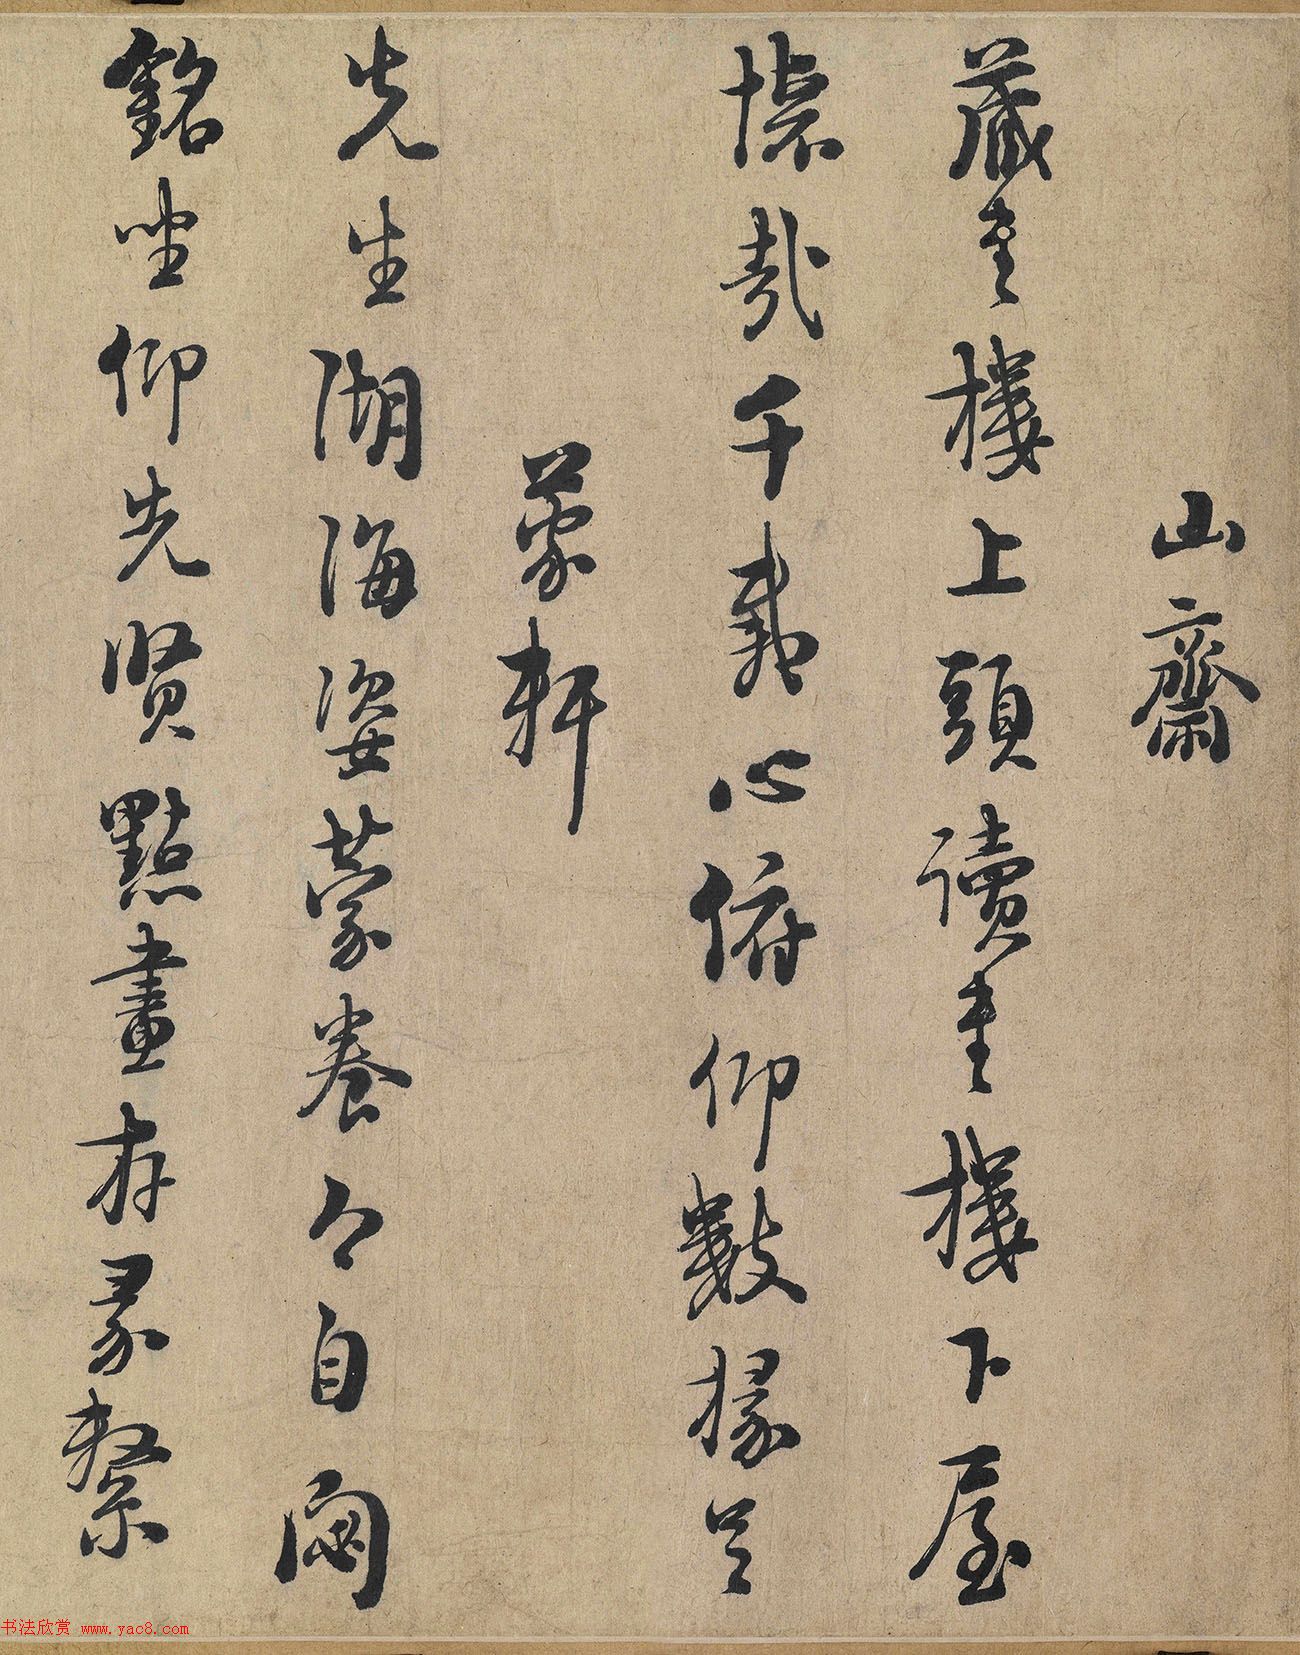 山齋
藏書樓上頭讀書樓下屋
懷哉千載心俯仰數椽足
蒙軒
先生湖海姿蒙養今自閟
銘坐仰先賢點畫存彖繫
书法欣赏 www.yac8.com